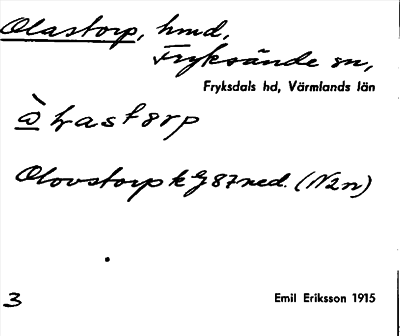 Olastorp, hmd,
Fryksände sn,
Fryksdals hd, Värmlands län
Olovstorp k g 87 ned. (N2n)
3
Emil Eriksson 1915